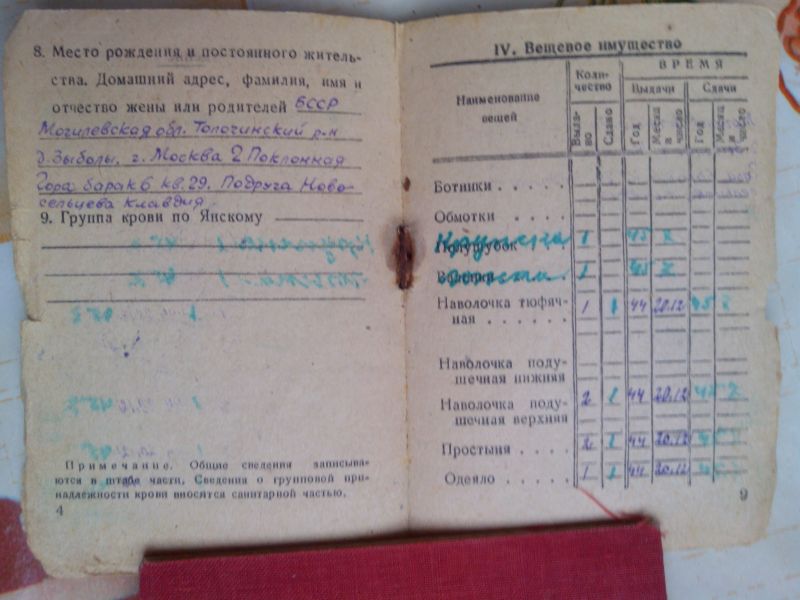 8. Место рождения и постоянного житель-
ства. Домашний адрес, фамилия, имя и
отчество жены или родителей БССР
Могилевская обл. Толочинский р-н
д. Зыболы, г. Москва 2 Поклонная
Гора барак 6 кв. 29. Подруга Ново-
сельцева Клавдия
9. Группа крови по Янскому
Примечание. Общие сведения записыва-
ются в штабе части. Сведения о групповой при-
надлежности крови вносятся санитарной частью.
4
IV. Вещевое имущество
Наименование вещей
Коли-
чество
ВРЕМЯ
Выдачи Сдачи
Выда-
во Сдано Год Месяц и число Год Месяц и число
Ботинки . . . . .
Обмотки . . . .
Полушубок 1 45 X
1 45 X
Наволочка тюфяч-
ная . . . . . . 1 1 44 20.12 45 X
Наволочка поду-
шечная нижняя
Наволочка поду-
шечная верхняя 2 1 44 20.12 45 X
Простыня . . . . 2 1 44 20.12 45 X
Одеяло . . . . . 1 1 44 20.12 45 X
9